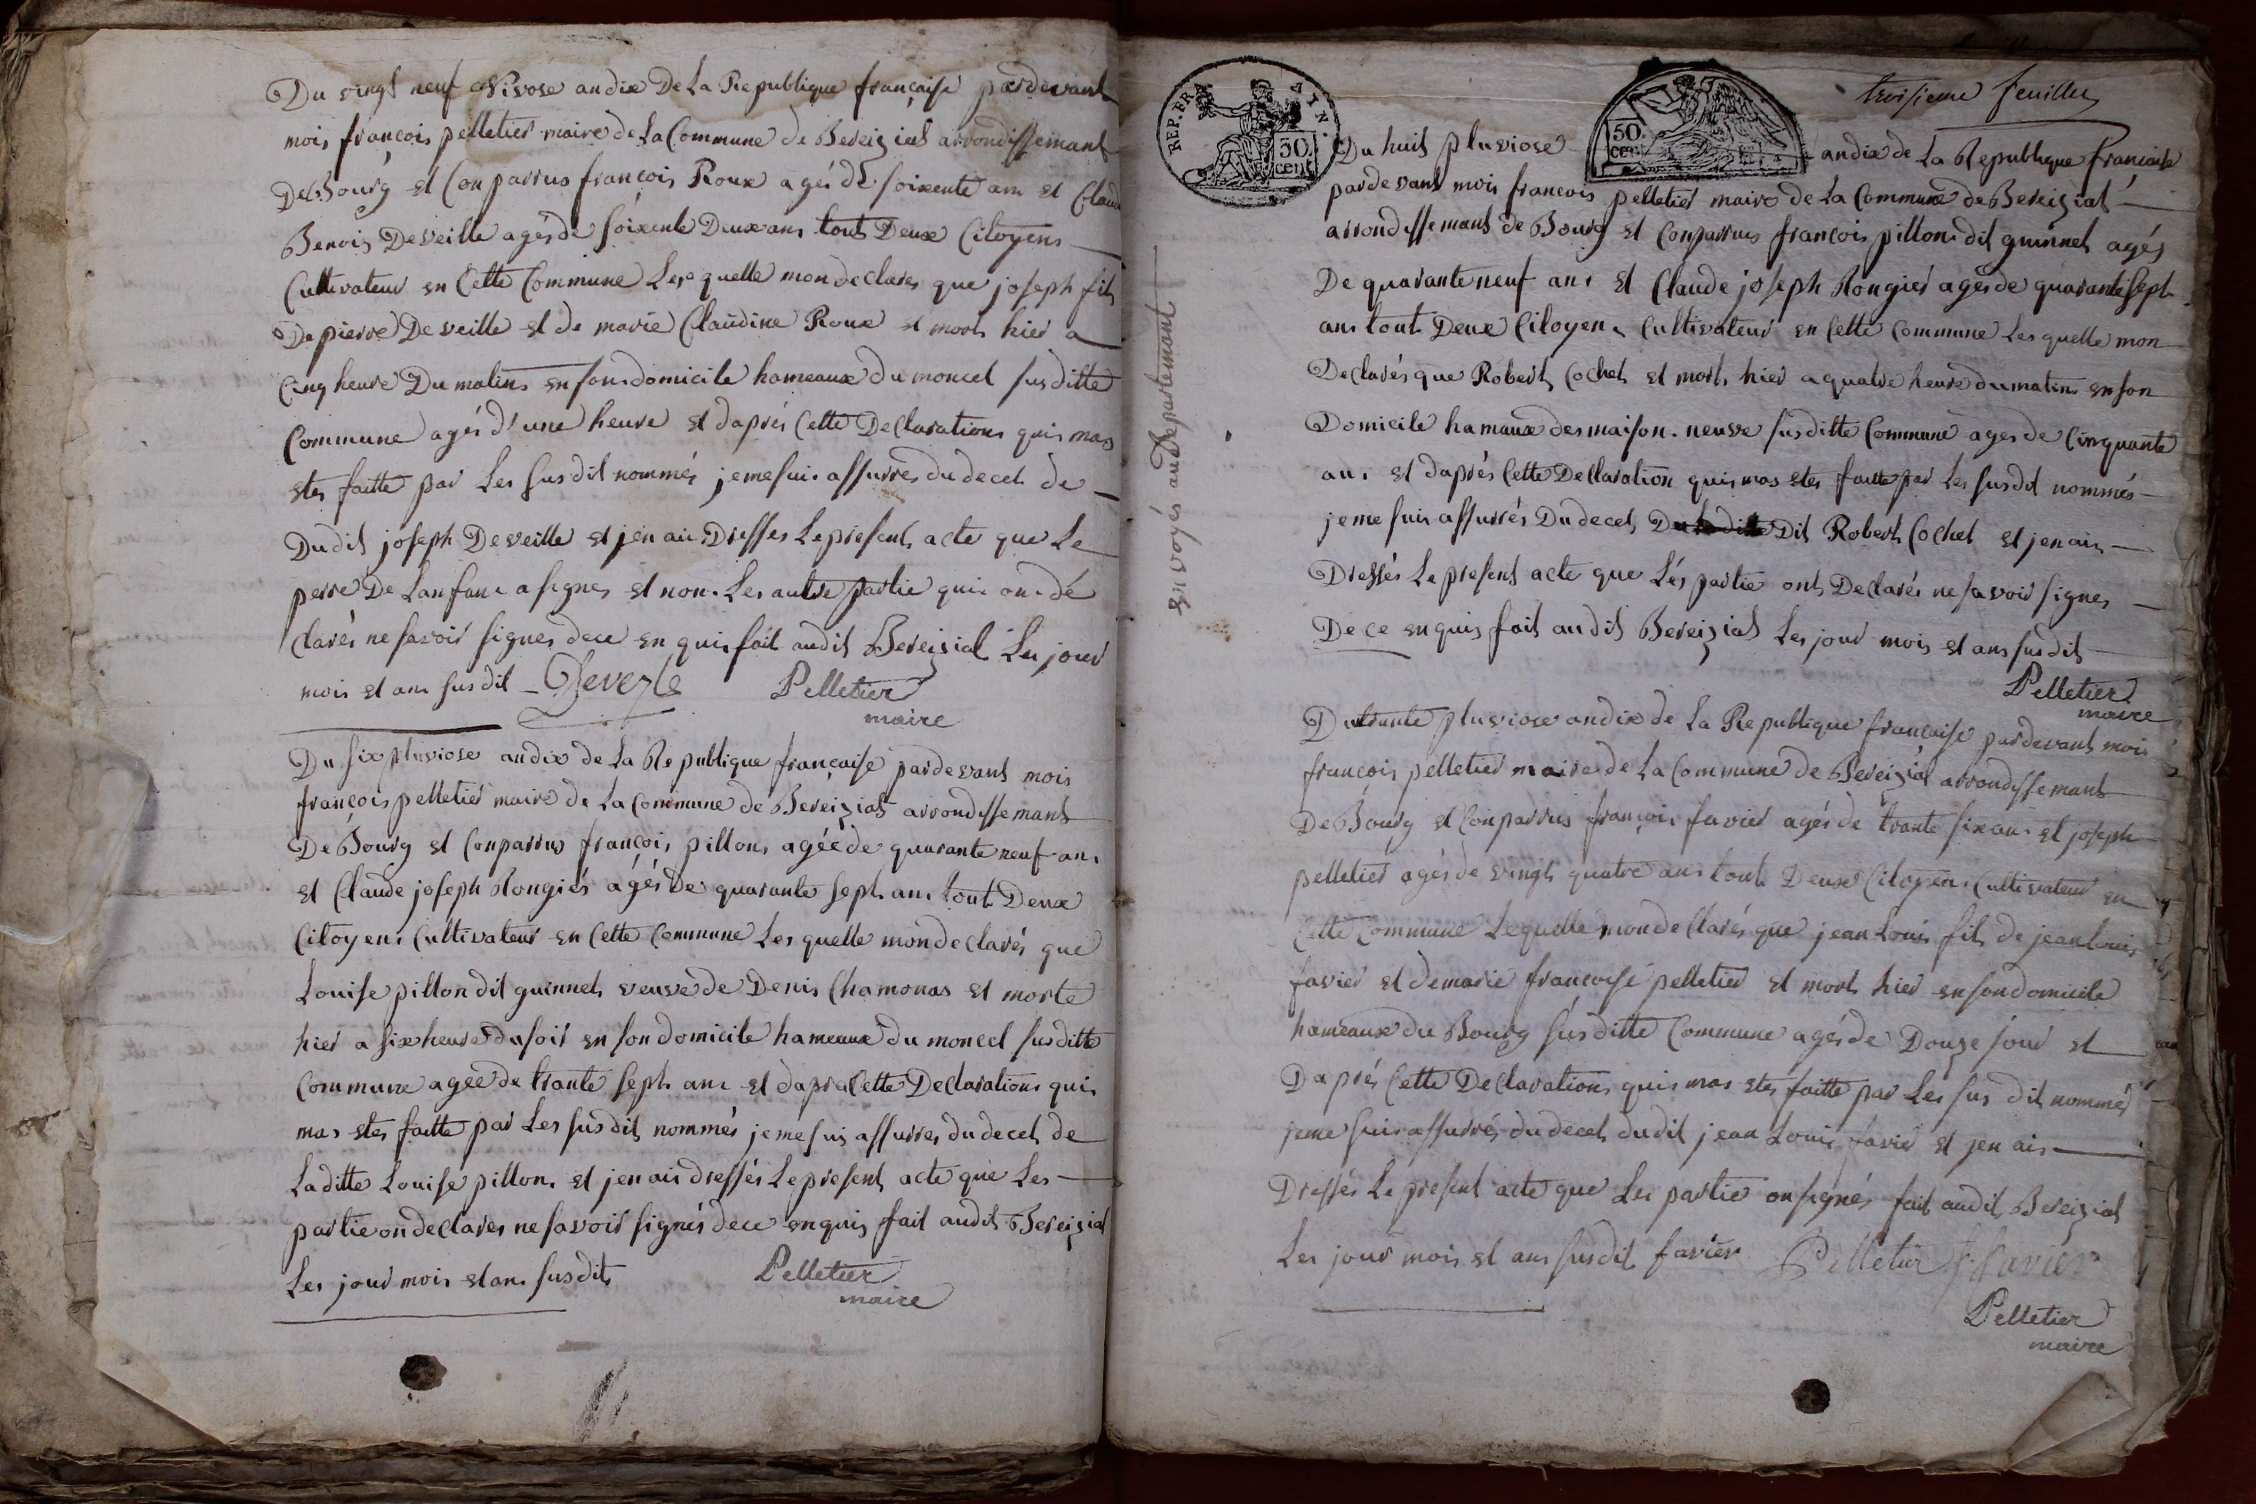 Du vingt neuf Nivose an dix De La Republique française pardevant
mois françois pelletier maire de La Commune de Bereizial arrondissemant
De Bourg et Conparrus françois Roux agés de soixente ans et Claude
Benois Deveille agés de soixente Deux ans tout Deux Citoyens
Cultivateur en Cette Commune Lesquelle mon declares que joseph fils
De pierre Deveille et de marie Claudine Roux et mort hier a
Cinq heure Du matins en son domicile hameaux du moncel susditte
Commune agés d'une heure et daprés Cette Declarations quis mas
etes faitte par Les susdit nommés jeme suis assurres du deces de
Dudit joseph Deveille et jen ais Dresses Le present acte que Le
perre De Lanfans a signes et non Les autre partie quis on dé
clarés ne savoir signes dece en quis fait audit Bereizial Les jour
mois et ans susdit Devezle Pelletier
maire
Du six pluviose an dix de La Republique française pardevant mois
françois pelletier maire de La Commune de Bereizial arrondissemant
De Bourg et Conparrus françois pillons agéé de quarante neuf ans
et Claude joseph Rongiés agés De quarante sept ans tout Deux
Citoyens Cultivateur en Cette Commune Lesquelle mon declarés que
Louise pillon dit guinnet veuve de Denis Chamonas et morte
hier a six heures du soir en son domicile hameaux du moncel susditte
Commune agéé de trante sept ans et dapres Cette Declarations quis
mas etes faitte par Les susdit nommés jeme suis assurres du deces de
Laditte Louise pillons et jen ais dressés Le present acte que Les
partie on declares ne savoir signés dece en quis fait audit Bereizial
Les jour mois et ans susdits Pelletier
maire
REP. FRA. AIN.
50 cent
50. cent
troisieme feuillet
envoyés au Departemant
Du huit pluviose an dix de La Republique française
pardevant mois françois pelletier maire de La Commune de Bereizial
arrondissemant de Bourg et Conparrus françois pillons dit guinnet agés
De quarante neuf ans et Claude joseph Rongier agés de quarante sept
ans tout Deux Citoyens Cultivateur en Cette Commune Lesquelle mon
Declarés que Robert Cochet et mort hier a quatre heure du matins en son
Domicile hamaux des maison neuve susditte Commune ages de Cinquante
ans et daprés Cette Declaration quis mas etes faitte par Les susdit nommés
jeme suis assurrés Du deces Dit Robert Cochet et jen ais
Dressés Le present acte que Lés partie ont Declarés ne savoir signes
De ce en quis fait audit Bereizial Les jour mois et ans susdit
Pelletier
maire
Du trante pluviose an dix de La Republique française pardevant mois
françois pelletier maire de La Commune de Bereizial arrondissemant
De Bourg et Conparrus françois favier agés de trante six ans et joseph
pelletier agés de vingt quatre ans tout Deux Citoyens Cultivateur en
Cette Commune Lequelle mon declarés que jean Louis fils de jean Louis
favier et de marie françoise pelletier et mort hier en son domicile
hameaux du Bourg susditte Commune agés de Douze jour et
Daprés Cette Declarations quis mas etes faitte par Les susdit nommés
jeme suis assurrés du deces dudit jean Louis favier et jen ais
Dressés Le present acte que Les partie on signés fait audit Bereizial
Les jour mois et ans susdit favier Pelletier f favier
Pelletier
maire